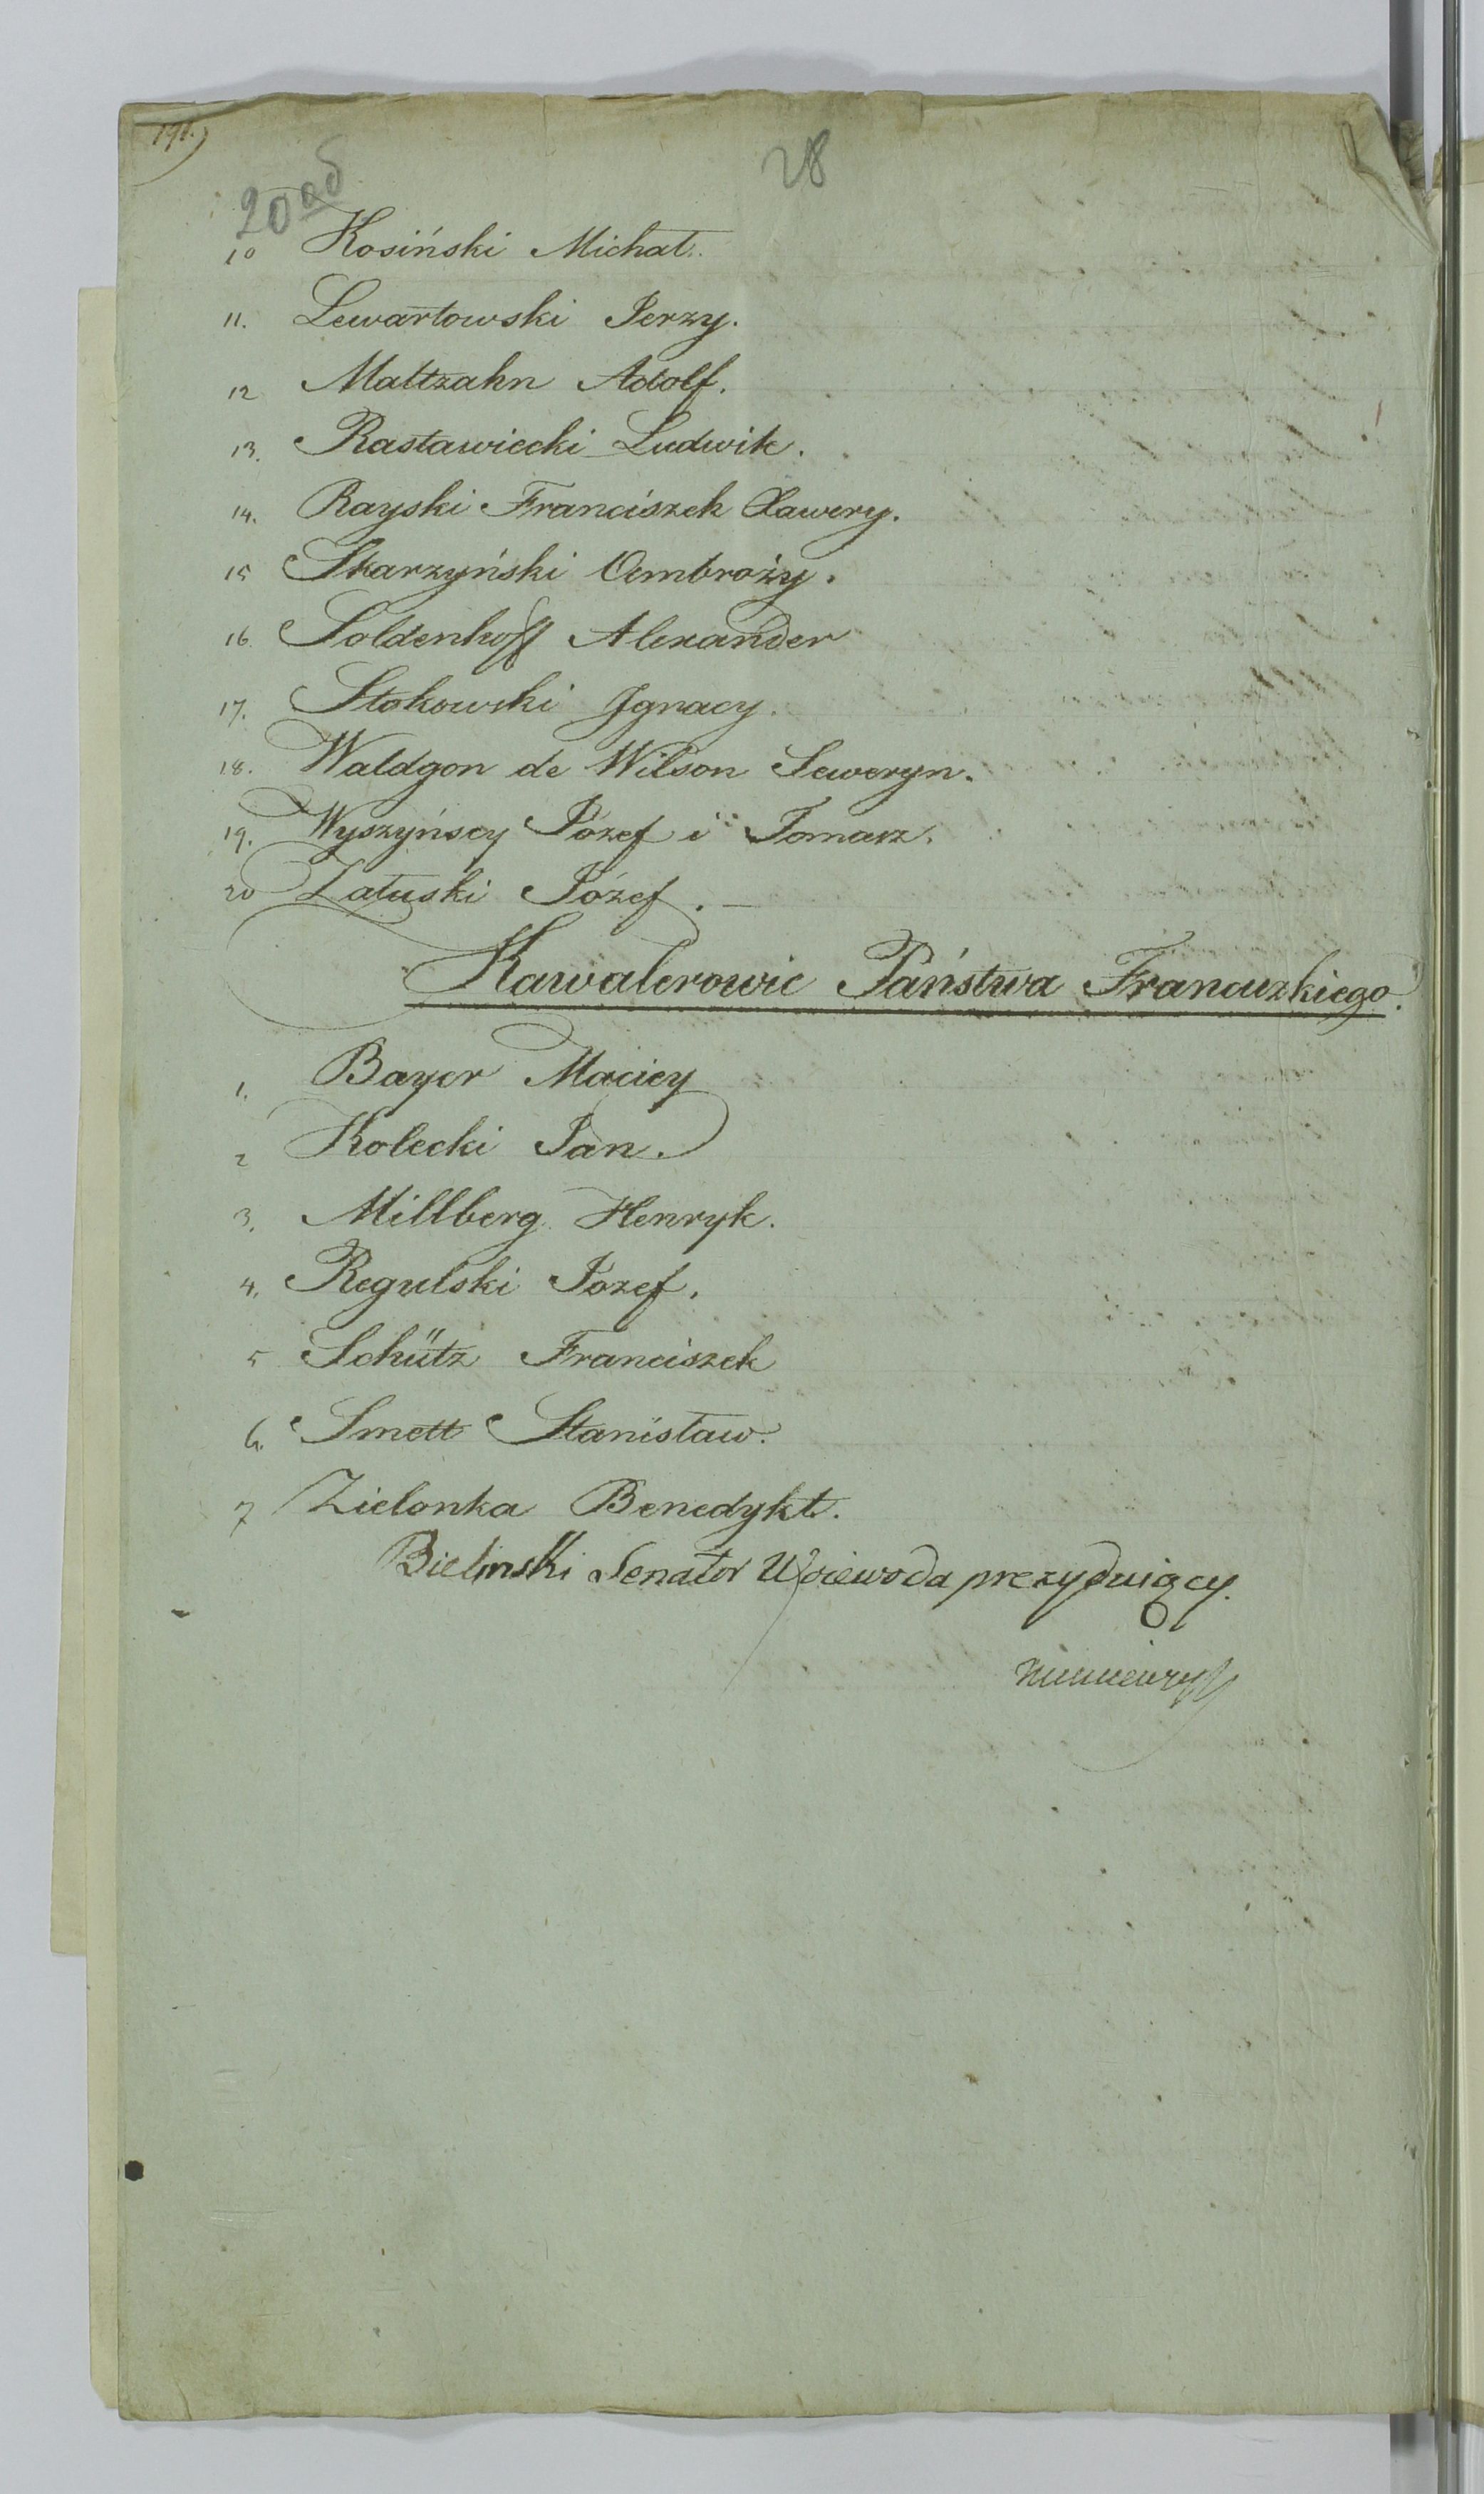 191.)
28
20 об
10 Kosiński Michał.
11. Lewartowski Jerzy.
12 Maltzahn Adolf.
13. Rastawiecki Ludwik.
14. Rayski Franciszek Xawery.
15 Skarzyński Ambroży.
16 Soldenhoff Alexander
17. Stokowski Ignacy.
18. Waldgon de Wilson Seweryn.
19. Wyszyńscy Józef i Tomasz.
20 Załuski Józef. —
Kawalerowie Państwa Francuzkiego.
1. Bayer Maciey
2 Kolecki Jan.
3. Millberg Henryk.
4. Regulski Jozef.
5 Schütz Franciszek
6. Smett Stanisław.
7 Zielonka Benedykt.
Bielinski Senator Woiewoda prezyduiący.